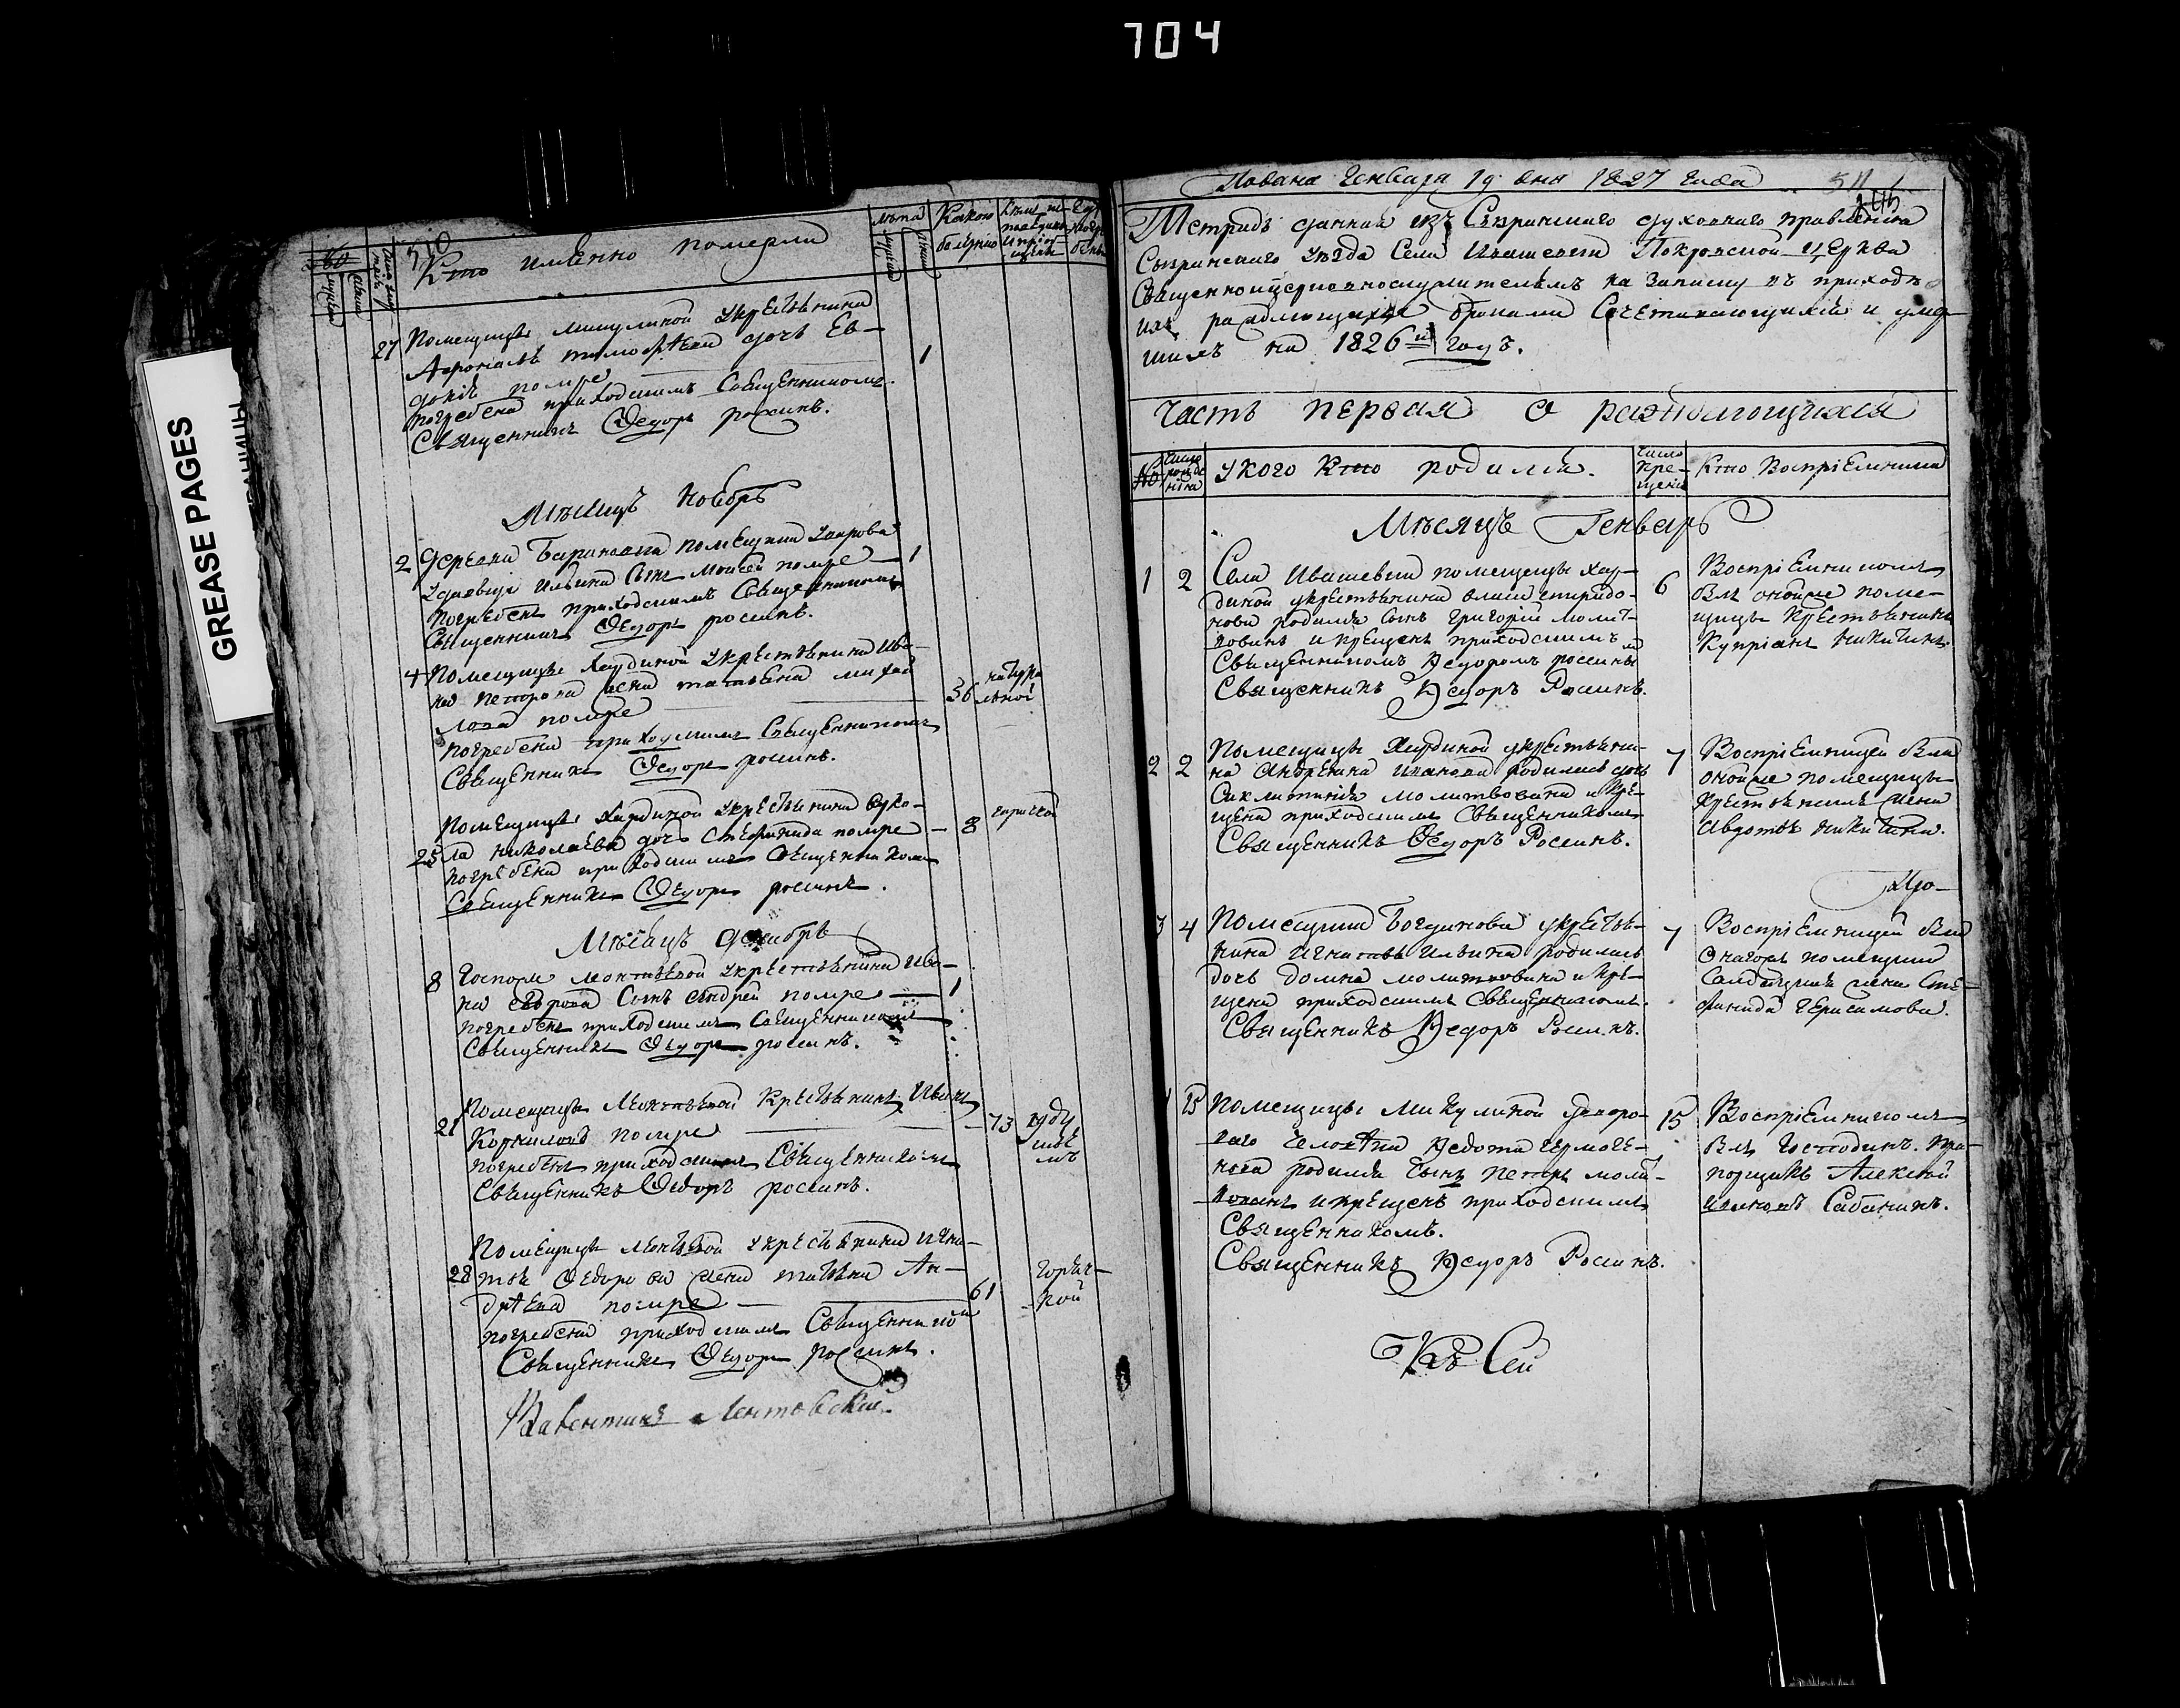 704
GREASE PAGES
510
Кто именно померли
лѣта
Какою
болѣзнію
27 Помещицы Микулиной укрестьянина
дочь Ев-
докія помре 1
погребена приходскимъ Священникомъ.
Священникъ Федоръ росинъ.
Мѣсяцъ Ноябрь
2 деревни помещика
Ильина Сынъ Моисей помре 1
погребенъ приходскимъ Священникомъ
Священникъ Федоръ росинъ.
4 Помещицы Хардиной укрестьянина Ива-
на Петрова жена татьяна михай
лова помре 36 натура
льной
погребена приходскимъ Священникомъ
Священникъ Федоръ росинъ.
Помещицы Хардиной укрестьянина Вуко-
25 ла николаева дочь Стефанида помре - 8 горячкой
погребена приходскимъ Священникомъ
Священникъ Федоръ росинъ.
Мѣсяцъ декабрь
8 Госпожи леонтьевой укрестьянина Ива-
на Сынъ андрей помре 1
погребенъ приходскимъ Священникомъ
Священникъ Федоръ росинъ.
Помещицы Леонтьевой Крестьянинъ Иванъ
21 Корнилов помре - 73 уду
шье
мъ
погребенъ приходскимъ Священникомъ
Священникъ Федоръ росинъ.
Помещицы леонтьевой укрестьянина Игна-
28 тья Федорова жена татьяна Ан-
дрѣева помре 61 горяч-
кой
погребена приходскимъ Священникомъ
Священникъ Федоръ росинъ.
Валентинъ Лентовскій.
Подана Генваря 19 дня 1827 года
511
Тетрадь данная изъ Сызранскаго духовнаго правления
Сызранскаго уѣзда Села Ивашевки Покровской Церкви
Священноицерковнослужителямъ на Записку въ приходѣ
ихъ раждающихся браками Сочетавающихся и умер-
шихъ на 1826й годъ.
Часть первая о раждающихся
№ Число рожде нія
укого Кто родился.
Число Кре- щения
Кто Воспріемники
Мѣсяцъ Генварь
1 2 Села Ивашевки помещицы Хар-
диной укрестьянина власа спиридо-
нова родился сынъ Григорій молит-
вованъ и крещенъ приходскимъ
Священникомъ Федоромъ росинымъ
Священникъ Федоръ Росинъ.
6 Воспріемникомъ
былъ оной же поме-
щицы Крестьянинъ
Купріанъ Никитинъ.
2 2 Помещицы Хардиной укрестьяни-
на Андреяна иванова родилась дочь
Синклитикія молитвована и Кре-
щена приходскимъ Священникомъ
Священникъ Федоръ Росинъ.
7 Воспріемницей была
оной же помещицы
Крестьянина жена
Авдотья Никитина.
3 4 Помещика Богданова укрестья-
нина Игнатья Ильина родилась
дочь Домна молитвована и кре-
щена приходскимъ Священникомъ.
Священникъ Федоръ Росинъ.
7 Воспріемницей была
Онагожъ помещика
Солдатская жена Сте-
фанида Герасимова.
15 Помещицы Микулиной дворо-
ваго человѣка Федота Гермоге-
нова родился Сынъ Петръ моли-
твованъ и крещенъ приходскимъ
Священникомъ.
Священникъ Федоръ Росинъ.
15 Воспріемникомъ
былъ Господинъ. пра-
порщикъ Алексѣй
Сабанинъ.
Къ Сей